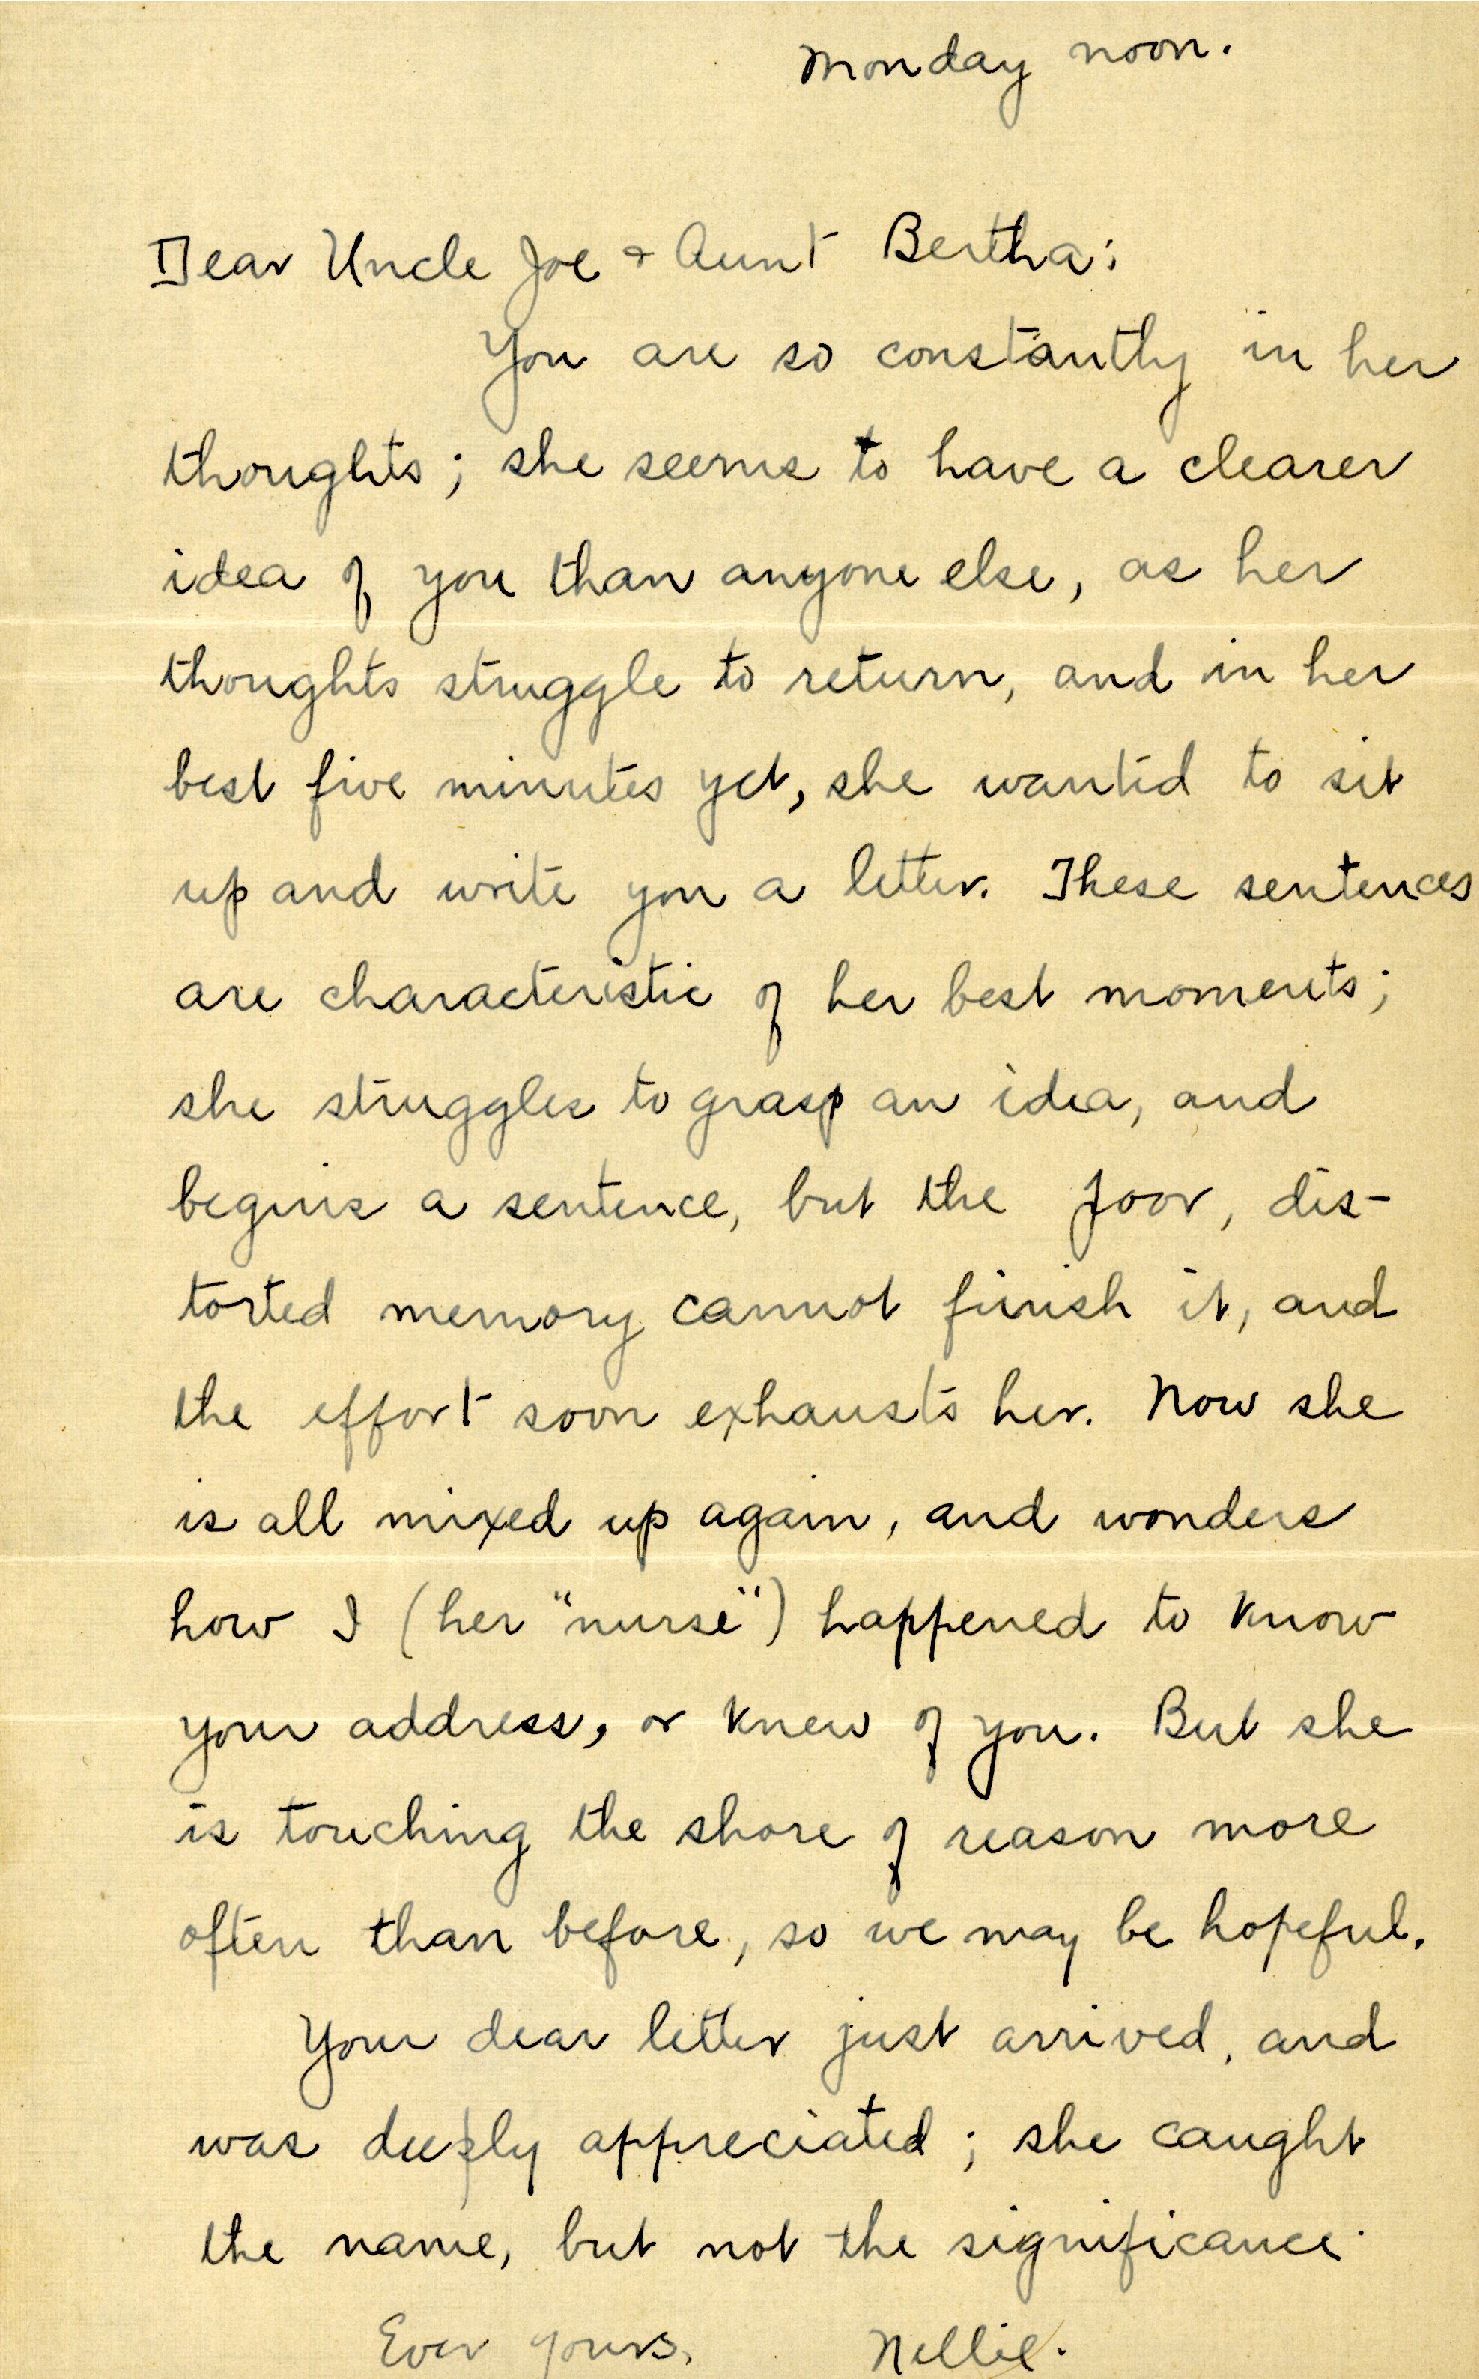 Monday noon.
Dear Uncle Joe + Aunt Bertha:
You are so constantly in her
thoughts; she seems to have a clearer
idea of you than anyone else, as her
thoughts struggle to return, and in her
best five minutes yet, she wanted to sit
up and write you a letter. These sentences
are characteristic of her best moments;
she struggles to grasp an idea, and
begins a sentence, but the poor, dis-
torted memory cannot finish it, and
the effort soon exhausts her. Now she
is all mixed up again, and wonders
how I (her "nurse") happened to know
your address, or knew of you. But she
is touching the shore of reason more
often than before, so we may be hopeful.
Your dear letter just arrived, and
was deeply appreciated; she caught
the name, but not the significance.
Ever yours, Nellie.